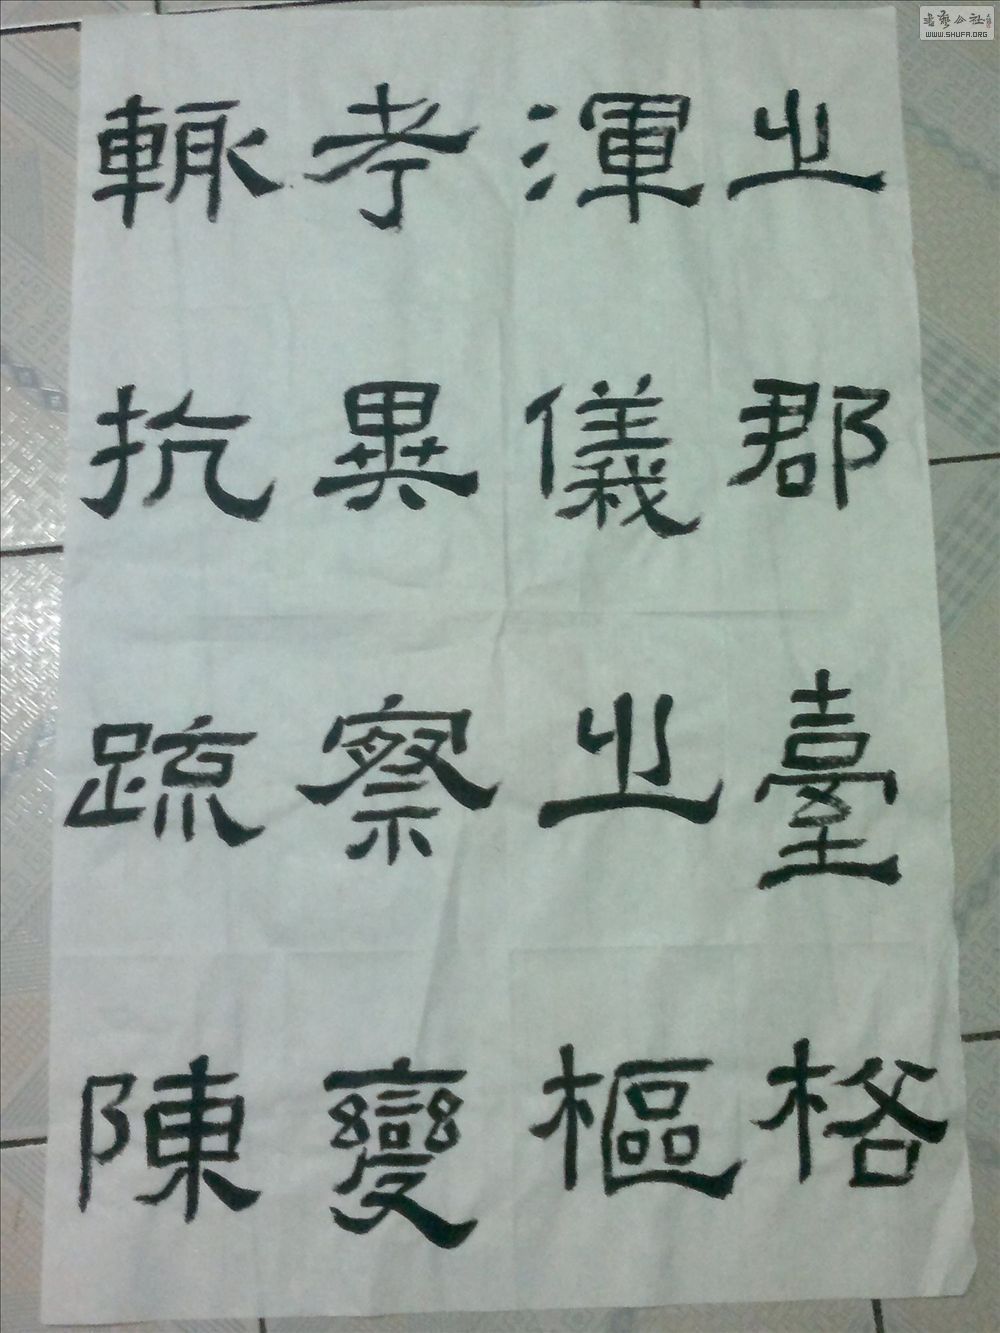 之郡臺格
渾儀之樞
考異察變
輒抗疏陳
書藝公社
WWW.SHUFA.ORG